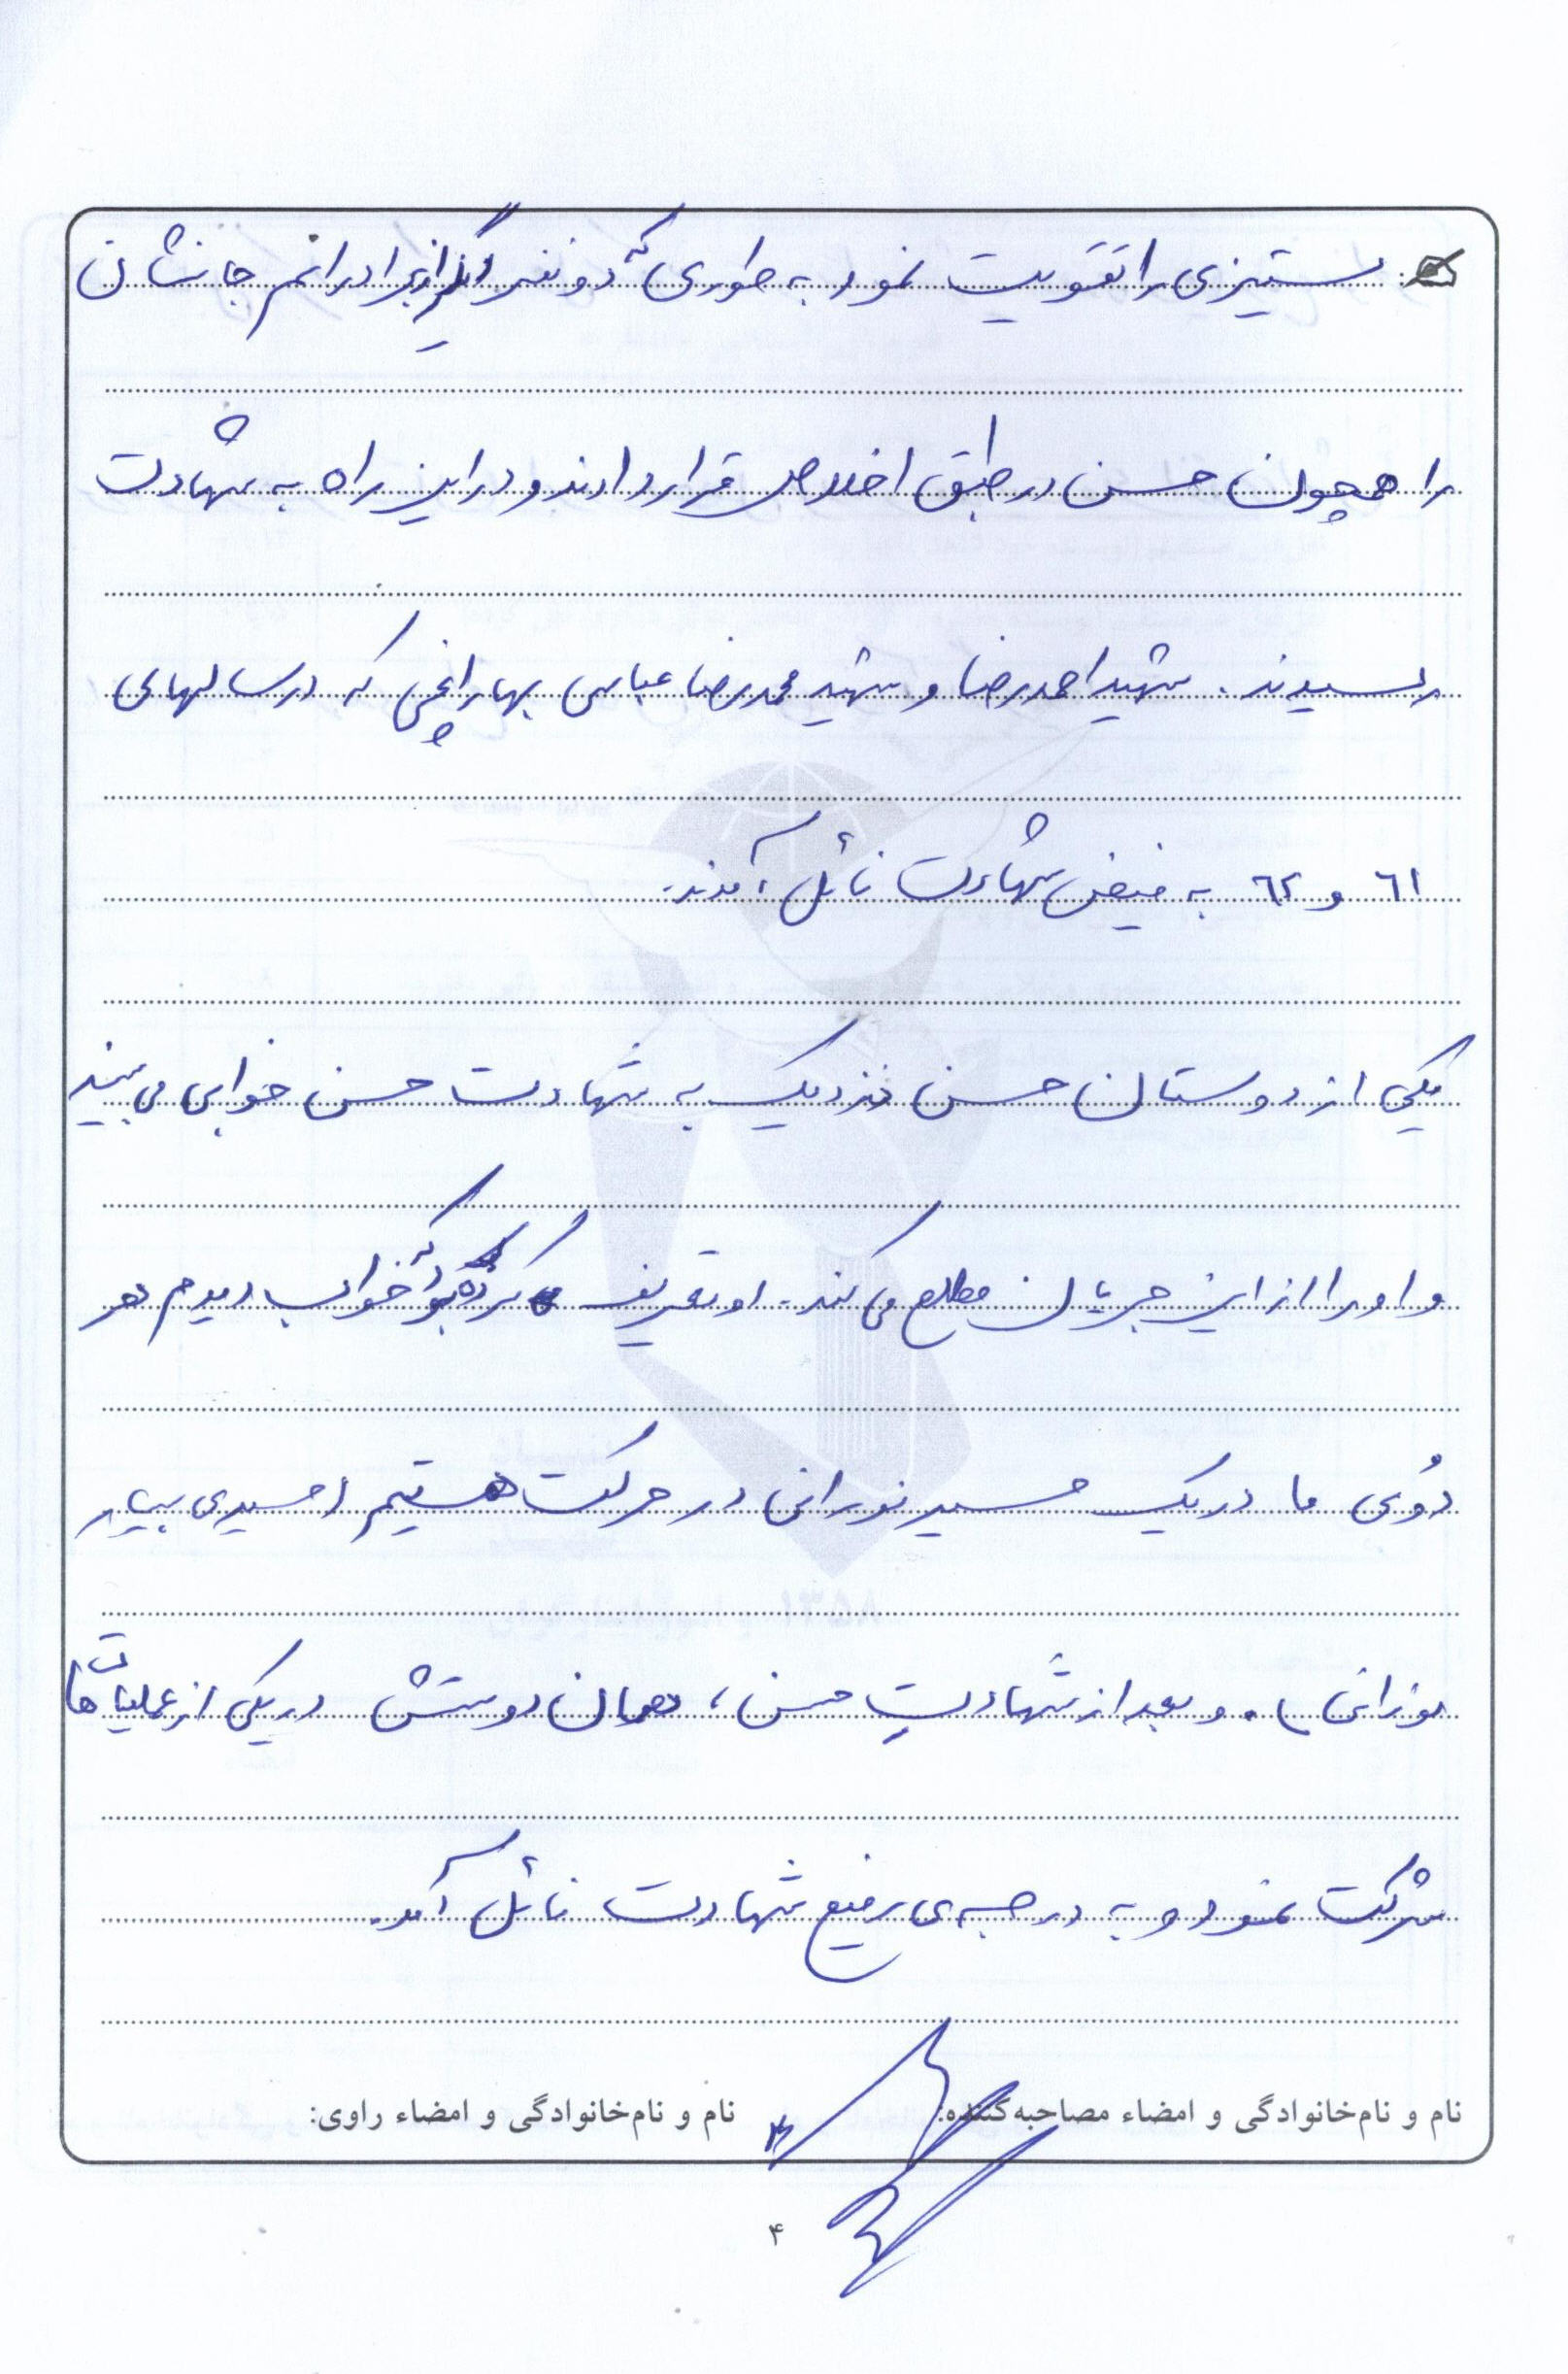 ستیزی را تقویت نمود به طوری که دو نفر دیگر از برادرانم جانشان
را همچون حسن در طبق اخلاص قرار دادند و در این راه به شهادت
رسیدند. شهید احمدرضا و شهید محمدرضا عباسی بهارانچی که در سالهای
۶۱ و ۶۲ به فیض شهادت نائل آمدند.
یکی از دوستان حسن نزدیک به شهادت حسن خوابی می بیند
و او را از این جریان مطلع می کند. او تعریف کرده بود که خواب دیدم هر
دُوی ما در یک مسیر نورانی در حرکت هستیم (مسیری بسیار
نورانی). و بعد از شهادتِ حسن، همان دوستش در یکی از عملیات ها
شرکت نمود و به درجه ی رفیع شهادت نائل آمد.
نام و نام‌خانوادگی و امضاء مصاحبه‌کننده: نام و نام‌خانوادگی و امضاء راوی:
۴